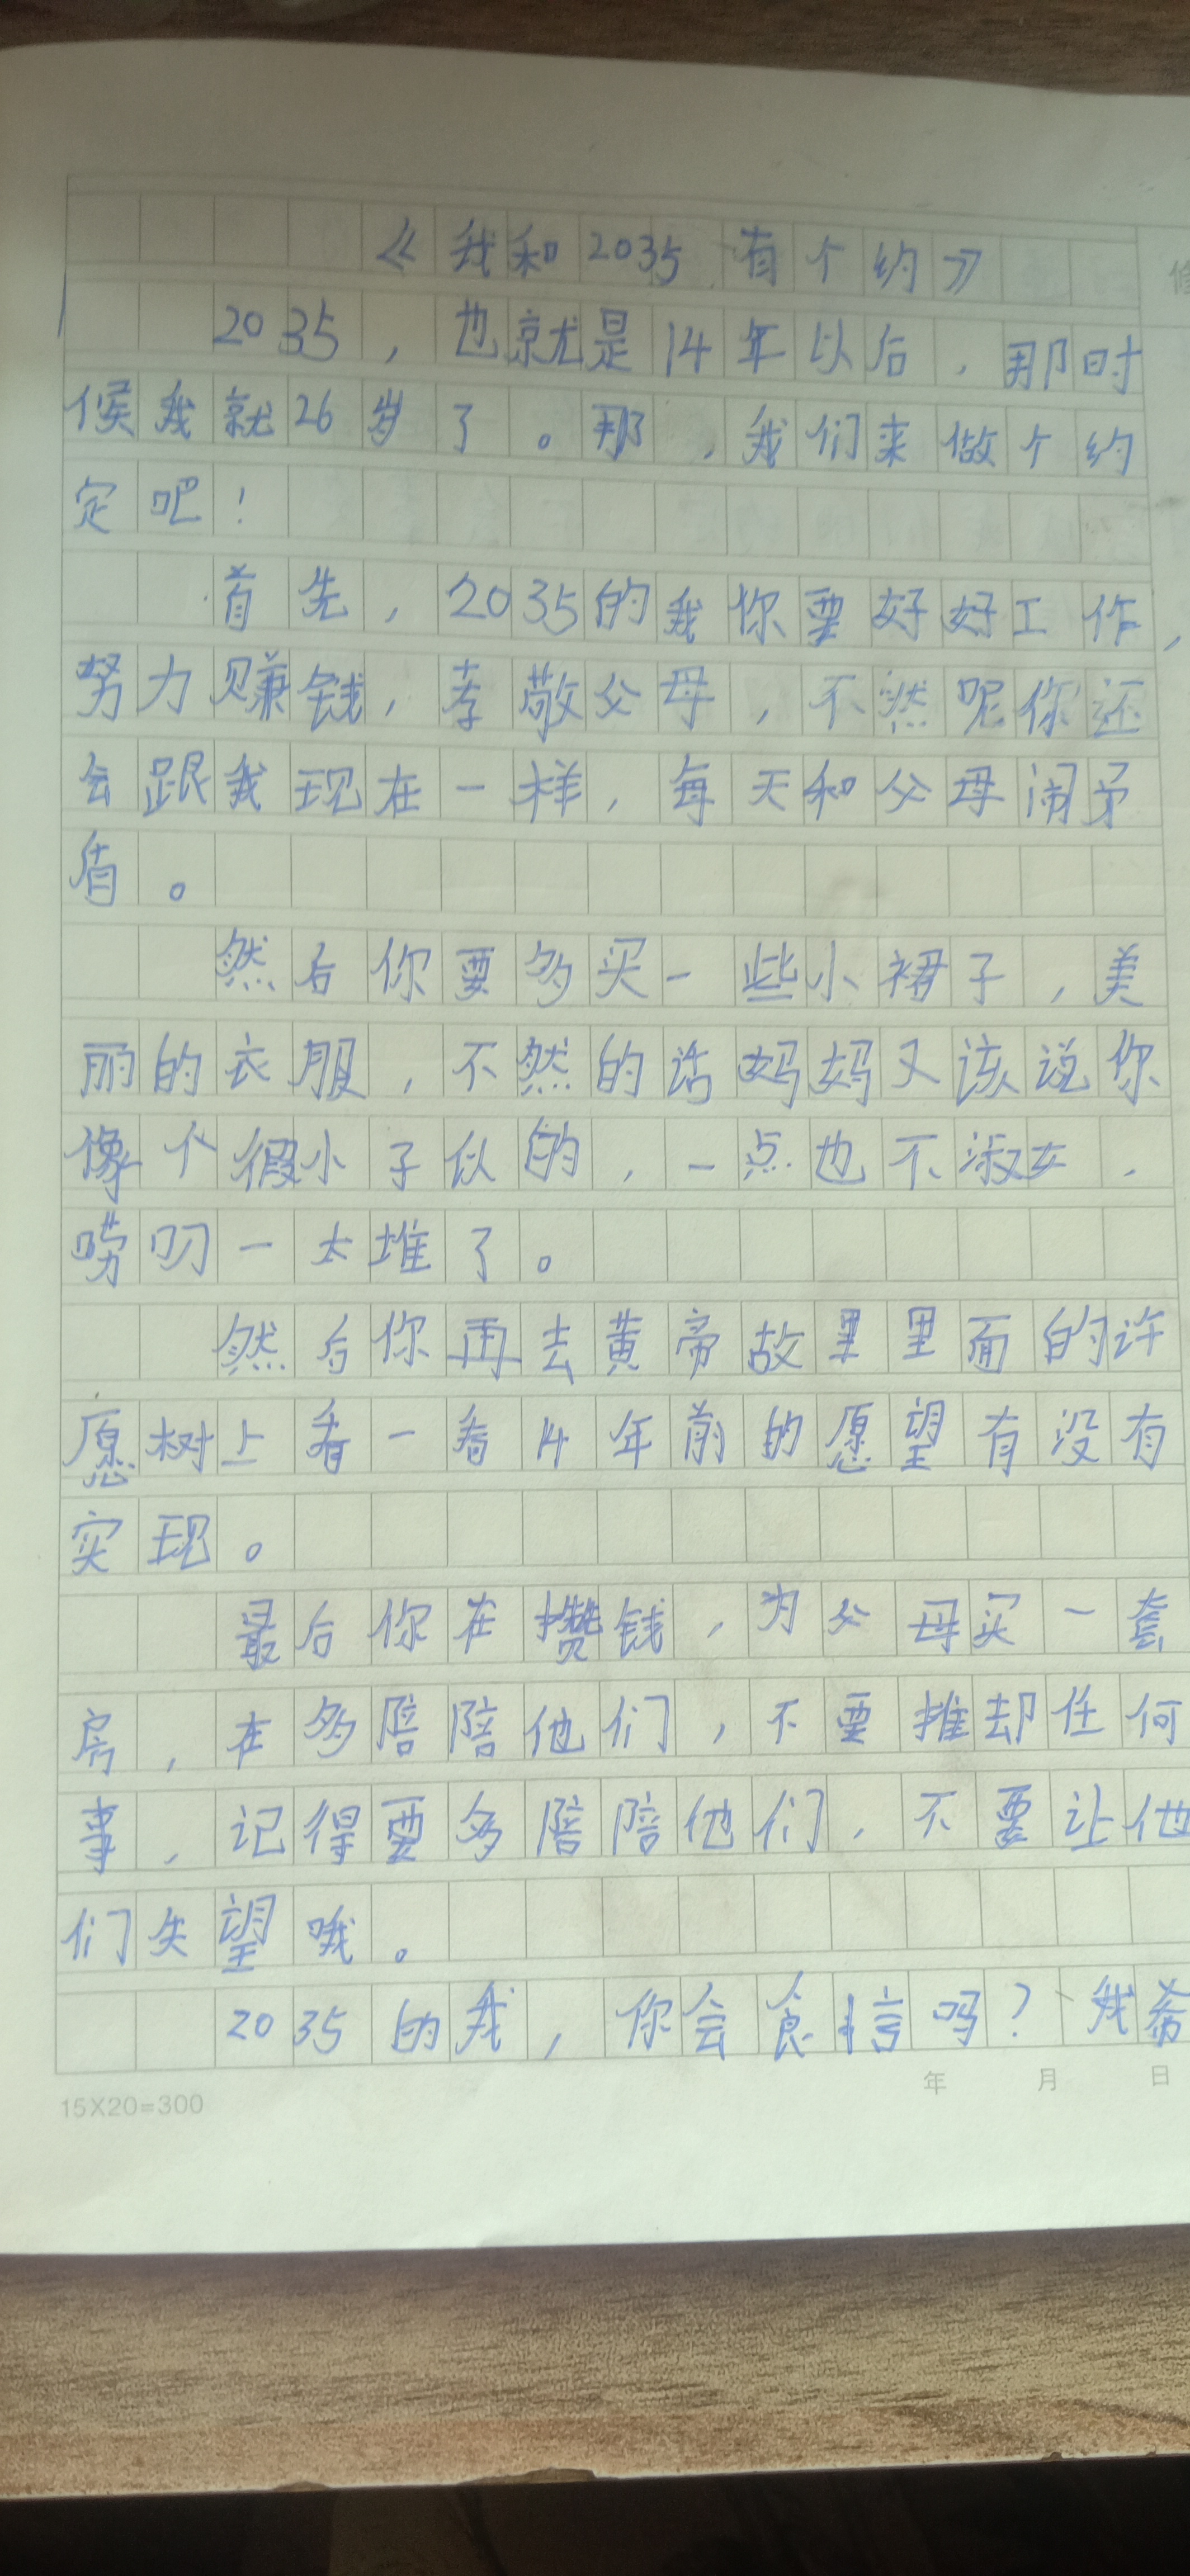 《我和2035有个约》
2035，也就是14年以后，那时
候我就26岁了。那，我们来做个约
定吧！
首先，2035的我你要好好工作，
努力赚钱，孝敬父母，不然呢你还
会跟我现在一样，每天和父母闹矛
盾。
然后你要多买一些小裙子，美
丽的衣服，不然的话妈妈又该说你
像个假小子似的，一点也不淑女，
唠叨一大堆了。
然后你再去黄帝故里里面的许
愿树上看一看14年前的愿望有没有
实现。
最后你在攒钱，为父母买一套
房，在多陪陪他们，不要推却任何
事，记得要多陪陪他们，不要让他
们失望哦。
2035的我，你会食信吗？我希
15X20=300
年 月 日